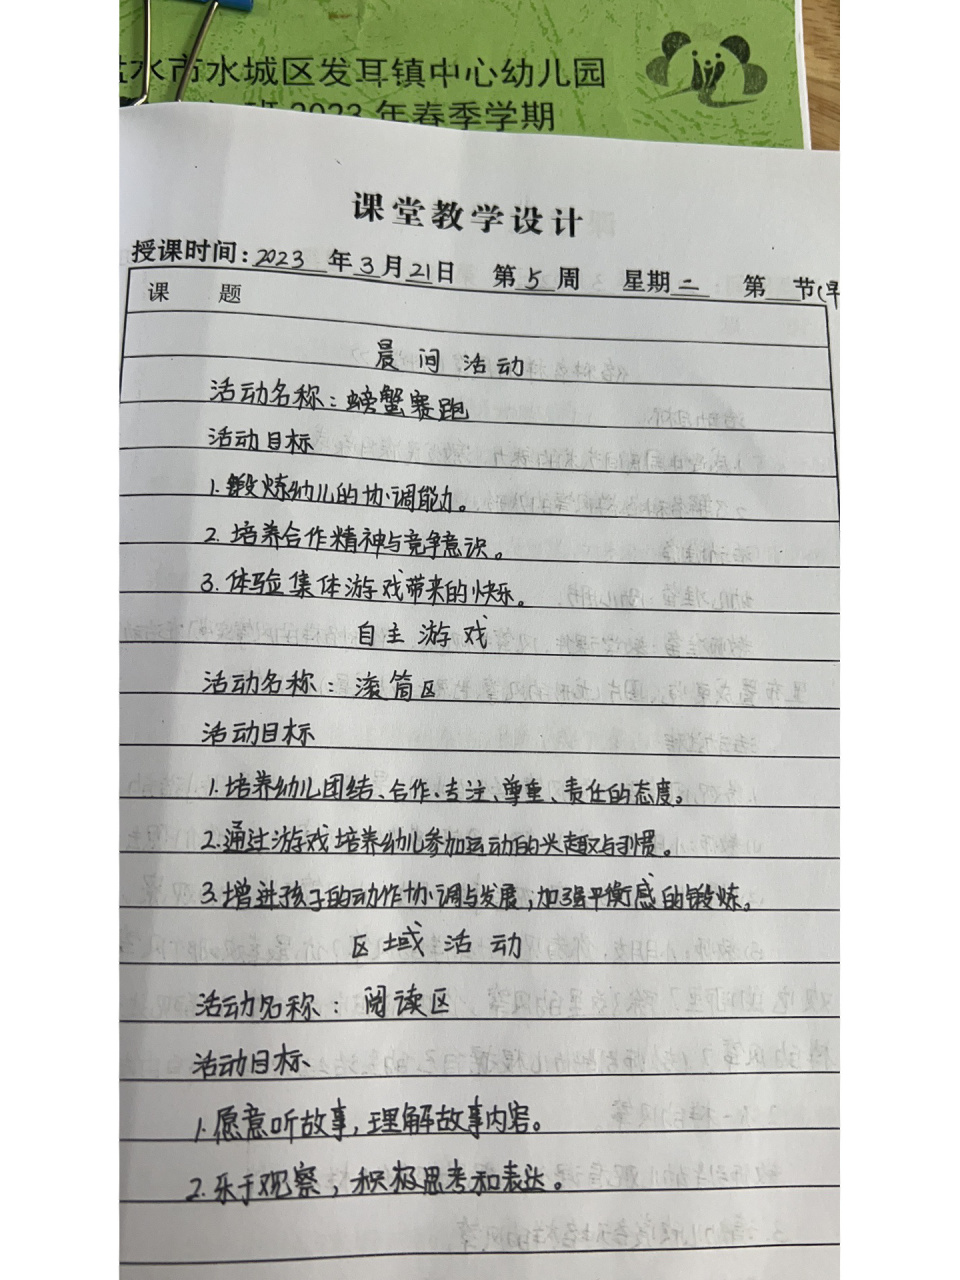 水市水城区发耳镇中心幼儿园
班 2023 年春季学期
课堂教学设计
授课时间:2023 年 3 月 21 日 第 5 周 星期 二 第 节(早
课 题
晨间活动
活动名称:螃蟹赛跑
活动目标
1.锻炼幼儿的协调能力。
2.培养合作精神与竞争意识。
3.体验集体游戏带来的快乐。
自主游戏
活动名称:滚筒区
活动目标
1.培养幼儿团结、合作、专注、尊重、责任的态度。
2.通过游戏培养幼儿参加运动的兴趣与习惯。
3.增进孩子的动作协调与发展,加强平衡感的锻炼。
区域活动
活动名称:阅读区
活动目标
1.愿意听故事,理解故事内容。
2.乐于观察,积极思考和表达。